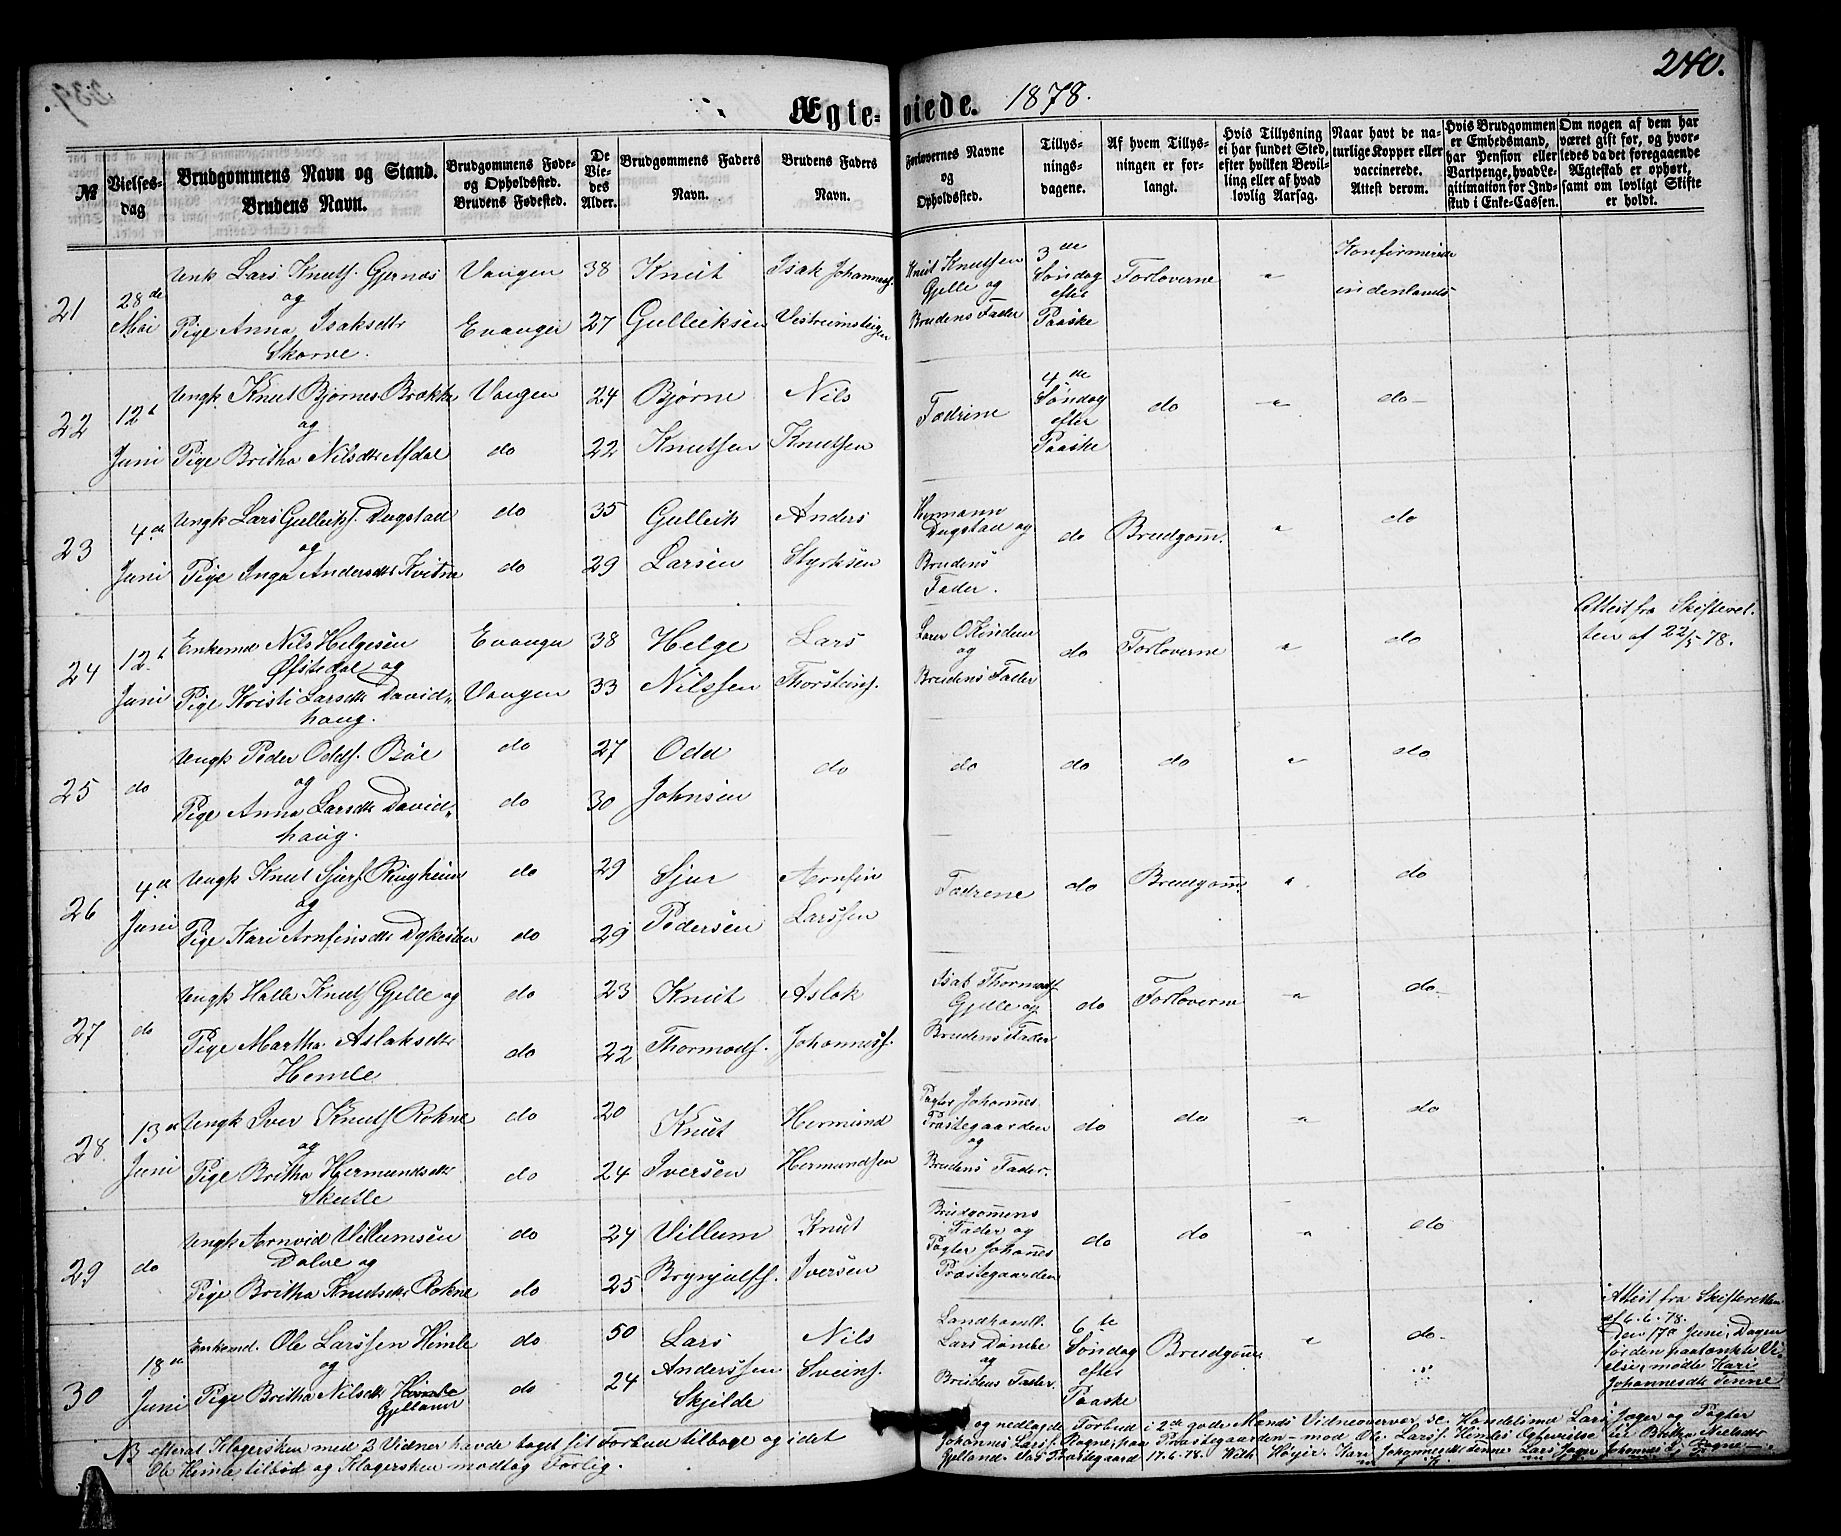 240.
Ægte=viede. 1878.
№
Vielses-dag
Brudgommens Navn og Stand.
Brudens Navn.
Brudgommens Føde- og Opholdssted.
Brudens Fødested.
De Vie-des Alder.
Brudgommens Faders Navn.
Brudens Faders Navn.
Forlovernes Navne og Opholdssted.
Tillys-nings-dagene.
Af hvem Tillys-ningen er for-langt.
Hvis Tillysning ei har fundet Sted, efter hvilken Bevil-ling eller af hvad lovlig Aarsag.
Naar havt de na-turlige Kopper eller vaccinerede. Attest derom.
Hvis Brudgommen er Embedsmand, har Pension eller Vartpenge, hvad Le-gitimation for Ind-skud i Enke-Cassen.
Om nogen af dem har været gift før, og hvor-ledes da det foregaaende Ægteskab er ophørt, samt om lovligt Skifte er holdt.
21 28de Mai Unk Lars Knuts. Gjernæs og Vangen 38 Knut Isak Johannes.
Pige Anna Isaksdtr Skorve. Evanger 27 Gulleiksen
Knut Knutsen Gjelle og Brudens Fader 3de Søndag efter Paaske Forloverne " Konfirmerede indenlands
22 12t Juni Ungk. Knut Bjørnes. Brække og Vangen 24 Bjørne Nils
Pige Britha Nilsdtr Afdal do 22 Knutsen Knutsen
Fædrene 4de Søndag efter Paaske do " do
23 4de Juni Ungk Lars Gulleiks. Dugstad og do 35 Gulleik Anders
Pige Inga Andersdtr Kvitne do 29 Larsen Styrksen
Hermann Dugstad og Brudens Fader. do Brudgom. " do
24 12t Juni Enkemd Nils Helgesen Øfstedal og Evanger 38 Helge Lars
Pige Kristi Larsdtr Davidhaug. Vangen 33 Nilssen Thorsteins.
og Brudens Fader do Forloverne " do
Attest fra Skifteretten af 22/5 78.
25 do Ungk Peder Odds. Bøe og do 27 Odd do
Pige Anna Larsdtr Davidhaug. do 30 Johnsen
do do do " do
26 4de Juni Ungk Knut Sjurs. Ringheim og do 29 Sjur Arnfin
Pige Kari Arnfinsdtr Dykesten do 29 Pedersen Larssen
Fædrene do Brudgom " do
27 do Ungk Halle Knuts Gjelle og do 23 Knut Aslak
Pige Martha Aslaksdtr Hemle do 22 Thormods. Johanness.
Isak Thormods Gjelle og Brudens Fader do Forloverne " do
28. 13de Juni Ungk Iver Knuts Rokne og do 20 Knut Hermund
Pige Britha Hermundsdtr Skutle do 24 Iversen Hermundsen
Pagter Johannes Præstegaarden og Brudens Fader. do do " do
29 do Ungk Arnvid Villumsen Dalve og do 24 Villum Knut
Pige Britha Knutsdtr Rokne do 25 Brynjulfs. Iversen
Brudgomens Fader og Pagter Johannes Præstegaarden do do " do
30 18de Juni Enkemd. Ole Larssen Himle og do 50 Lars Nils
Pige Britha Nilsdtr Gjelland do 24 Anderssen Skjelde Sveins.
Landhandl. Lars og Brudens Fader. 6te Søndag efter Paaske Brudgom " do
Attest fra Skifteretten af 6.6.78.
Den 17de Juni, Dagen før den paatænkte Vielse, mødte Kari Johannesdtr Tenne
og nedlagde Forbud i 2de gode Mænds Vidneovervær, Handelsmd Lars Jæger og Pagter
Johannes Larss. Rogne, paa Præstegaarden mod Ole Larss. Himles med Britha Nielsdtr
Gjelland. Præstegaard 17.6.78. Kari Johannesdtr Tenne Lars Jæger Johannes L. Rogne
NB efterat Klagersken med 2 Vidner havde taget sit Forbud tilbage og idet
Ole Himle tilbød og Klagersken modtog Forlig.